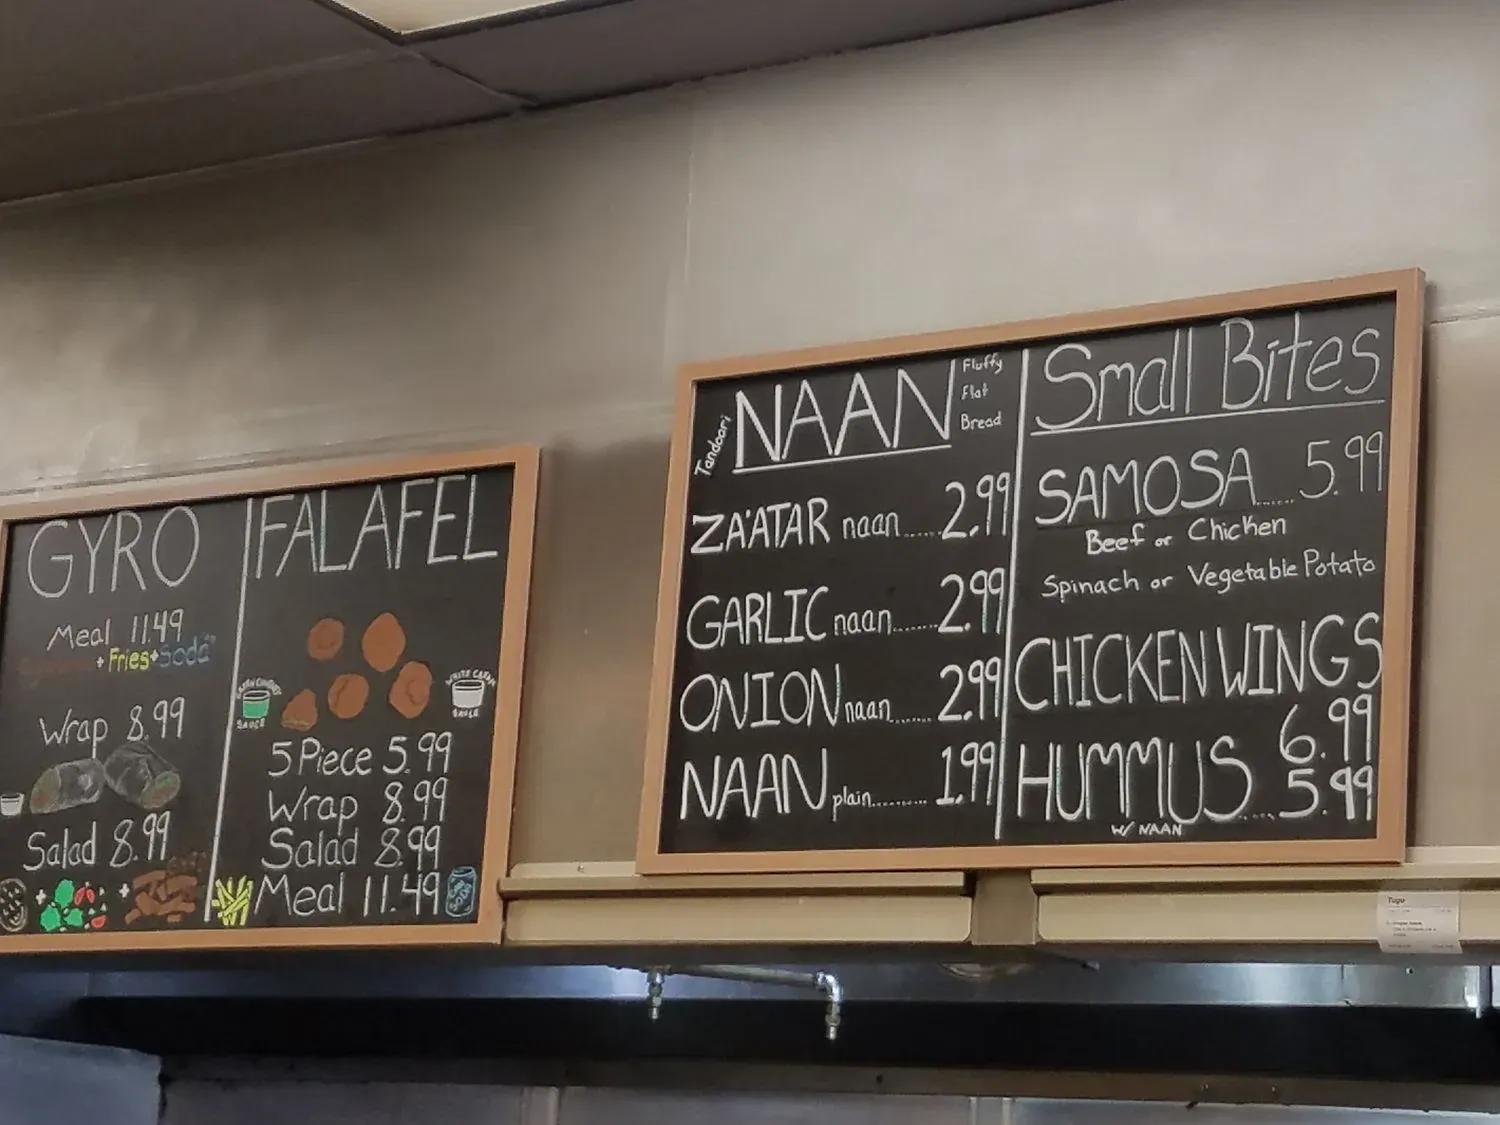 GYRO
Meal 11.49
+ Fries + Soda
Wrap 8.99
Salad 8.99
FALAFEL
SAUCE
WHITE
SAUCE
5 Piece 5.99
Wrap 8.99
Salad 8.99
Meal 11.49
SODA
Tandoori
NAAN
Fluffy
Flat
Bread
ZA'ATAR naan.....2.99
GARLIC naan.......2.99
ONION naan.......2.99
NAAN plain..........1.99
Small Bites
SAMOSA......5.99
Beef or Chicken
Spinach or Vegetable Potato
CHICKEN WINGS
6.99
HUMMUS....5.99
W/ NAAN